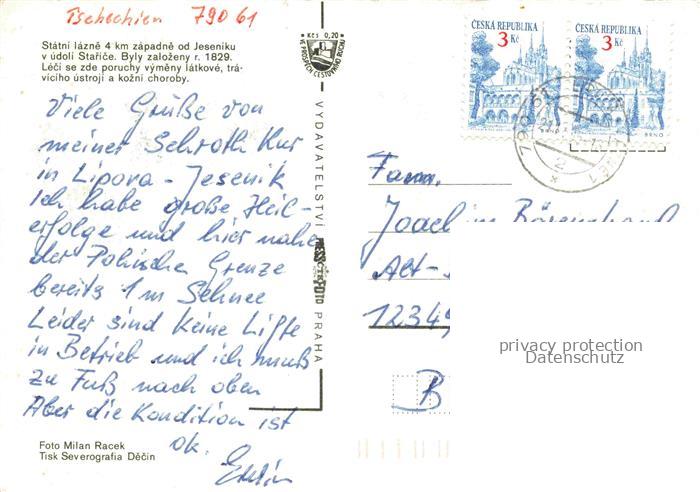 Tschechien 79061
Státní lázně 4 km západně od Jeseníku
v údolí Staříče. Byly založeny r. 1829.
Léčí se zde poruchy výměny látkové, trá-
vicího ústrojí a kožní choroby.
Kčs 0,20
VE PROSPĚCH CESTOVNÍHO RUCHU
Viele Grüße von
meiner Schroth Kur
in Lipova - Jesenik
Ich habe große Heil-
erfolge und hier nahe
der Polnischen Grenze
bereits 1 m Schnee
Leider sind keine Lifte
in Betrieb und ich muß
zu Fuß nach oben
Aber die Kondition ist
ok.
Foto Milan Racek
Tisk Severografia Děčín
VYDAVATELSTVÍ PRESSFOTO PRAHA
ČESKÁ REPUBLIKA
3 Kč
BRNO
ČESKÁ REPUBLIKA
3 Kč
BRNO
790 61
Fam.
Joachim
Alt-
12349
B
privacy protection
Datenschutz